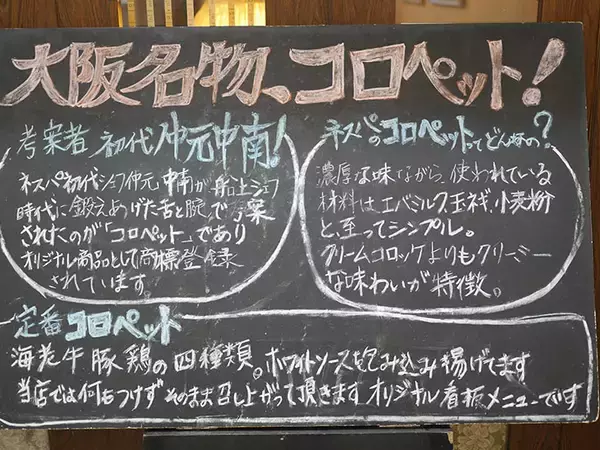 大阪名物、コロペット!
考案者 初代 仲元中南!
ネスパ初代シェフ仲元中南が船上シェフ
時代に鍛えあげた舌と腕で考案
されたのが「コロペット」であり
オリジナル商品として商標登録
されています。
ネスパのコロペットってどんなの?
濃厚な味ながら、使われている
材料はエバミルク、玉ネギ、小麦粉
と、至ってシンプル。
クリームコロッケよりもクリーミー
な味わいが特徴。
定番コロペット
海老牛豚鶏の四種類。ホワイトソースを包み込み揚げてます
当店では何もつけずそのまま召し上がって頂きます オリジナル看板メニューです